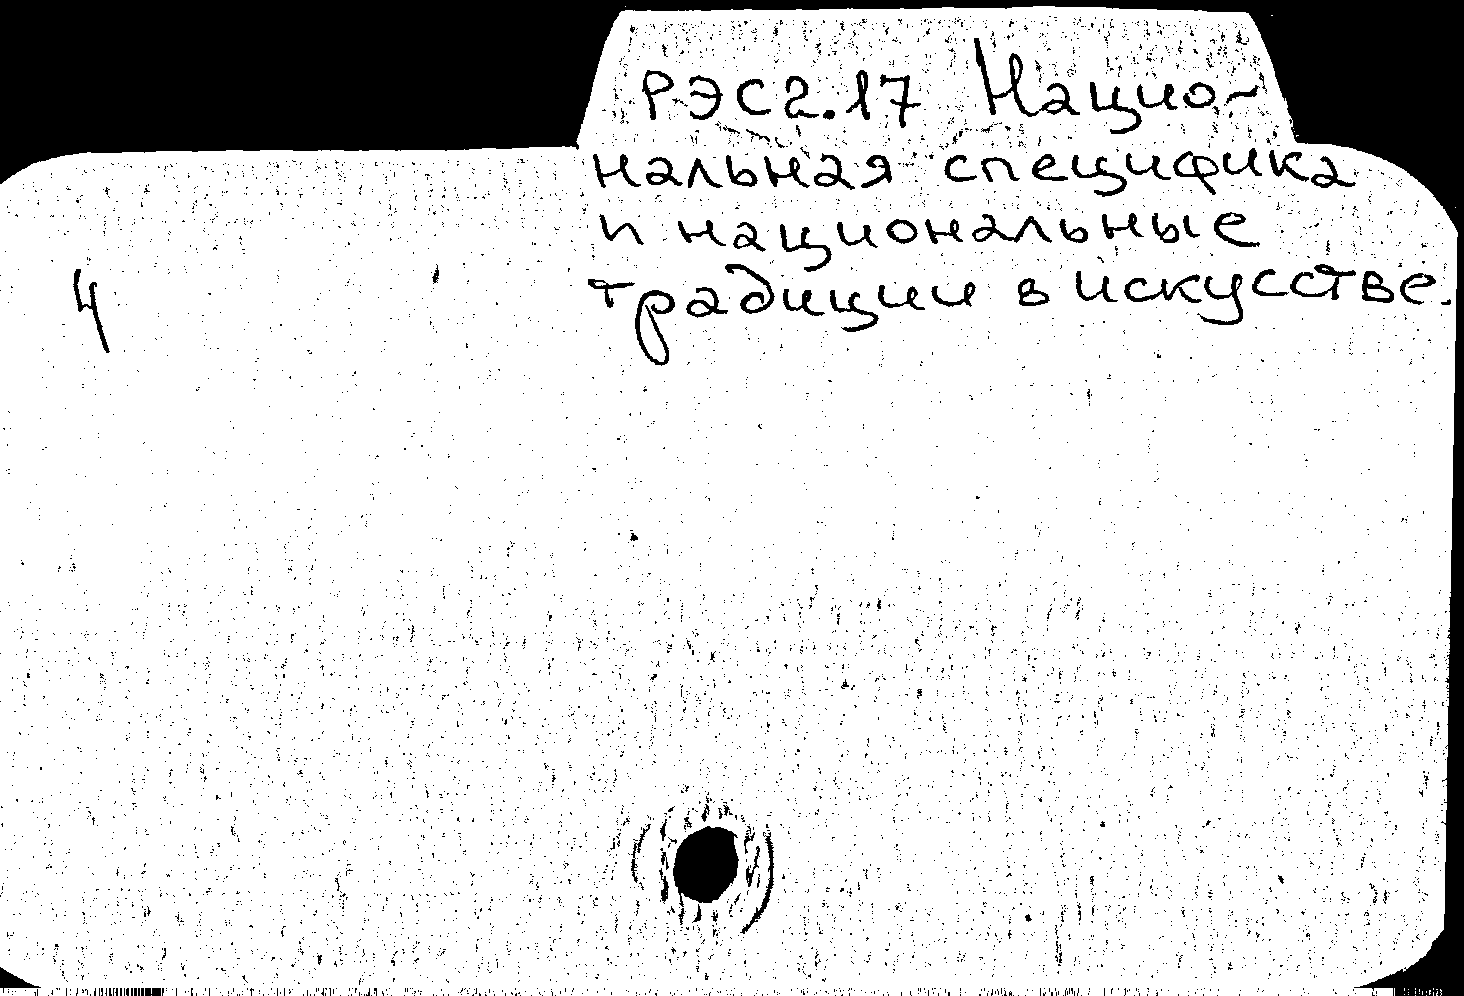 РЭС2.17 Нацио-
нальная специфика
и национальные
традиции в искусстве.
4